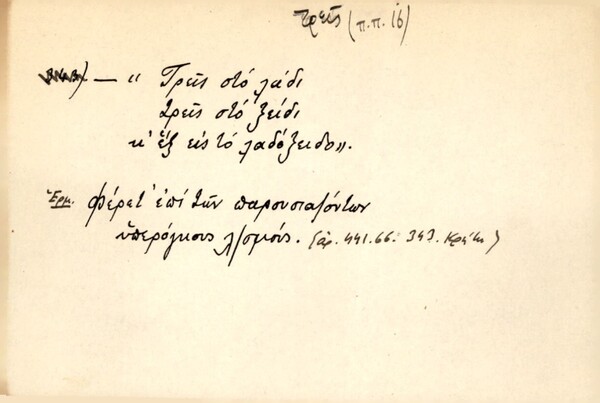 τρεῖς (π.π. 16)
343). — «Τρεῖς στὸ λάδι
τρεῖς στὸ ξείδι
κ' ἕξ εἰς τὸ λαδόξειδο».
Ἑρμ. Φέρετ' ἐπὶ τῶν παρουσιαζόντων
ὑπερόγκους λ/σμούς. (ἀρ. 441.66: 343. Κρήτη)